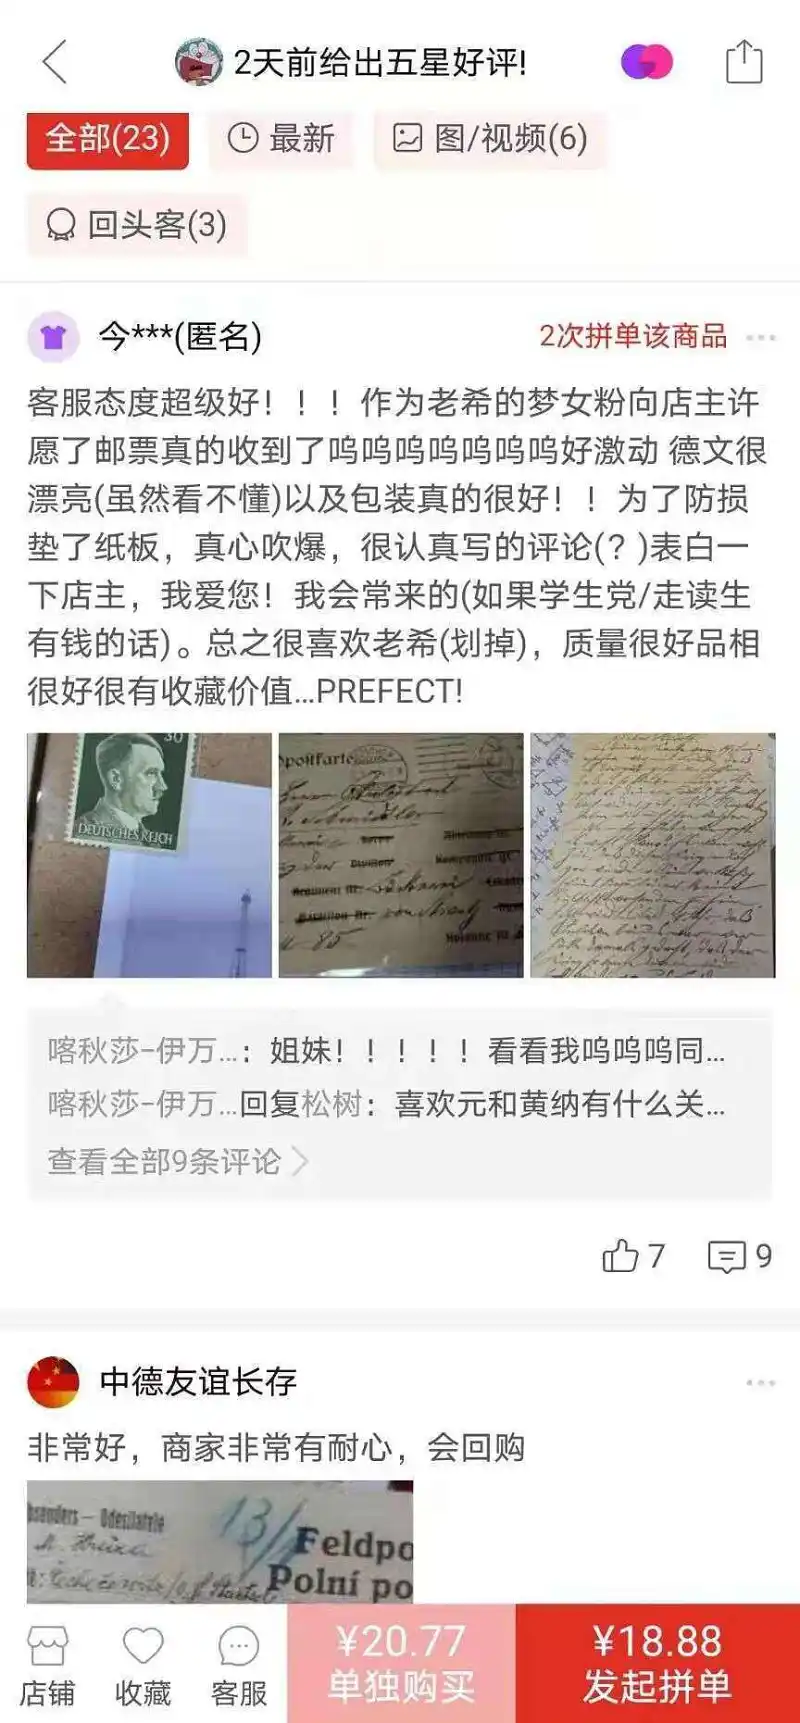 2天前给出五星好评!
全部(23)
最新
图/视频(6)
回头客(3)
今***(匿名)
2次拼单该商品
客服态度超级好！！！作为老希的梦女粉向店主许
愿了邮票真的收到了呜呜呜呜呜呜呜好激动 德文很
漂亮(虽然看不懂)以及包装真的很好！！为了防损
垫了纸板，真心吹爆，很认真写的评论(？)表白一
下店主，我爱您！我会常来的(如果学生党/走读生
有钱的话)。总之很喜欢老希(划掉)，质量很好品相
很好很有收藏价值...PREFECT!
30
DEUTSCHES REICH
postkarte
喀秋莎-伊万...：姐妹！！！！！看看我呜呜呜同...
喀秋莎-伊万...回复松树：喜欢元和黄纳有什么关...
查看全部9条评论
7
9
中德友谊长存
非常好，商家非常有耐心，会回购
13/
Feldpo
Polní po
店铺
收藏
客服
¥20.77
单独购买
¥18.88
发起拼单